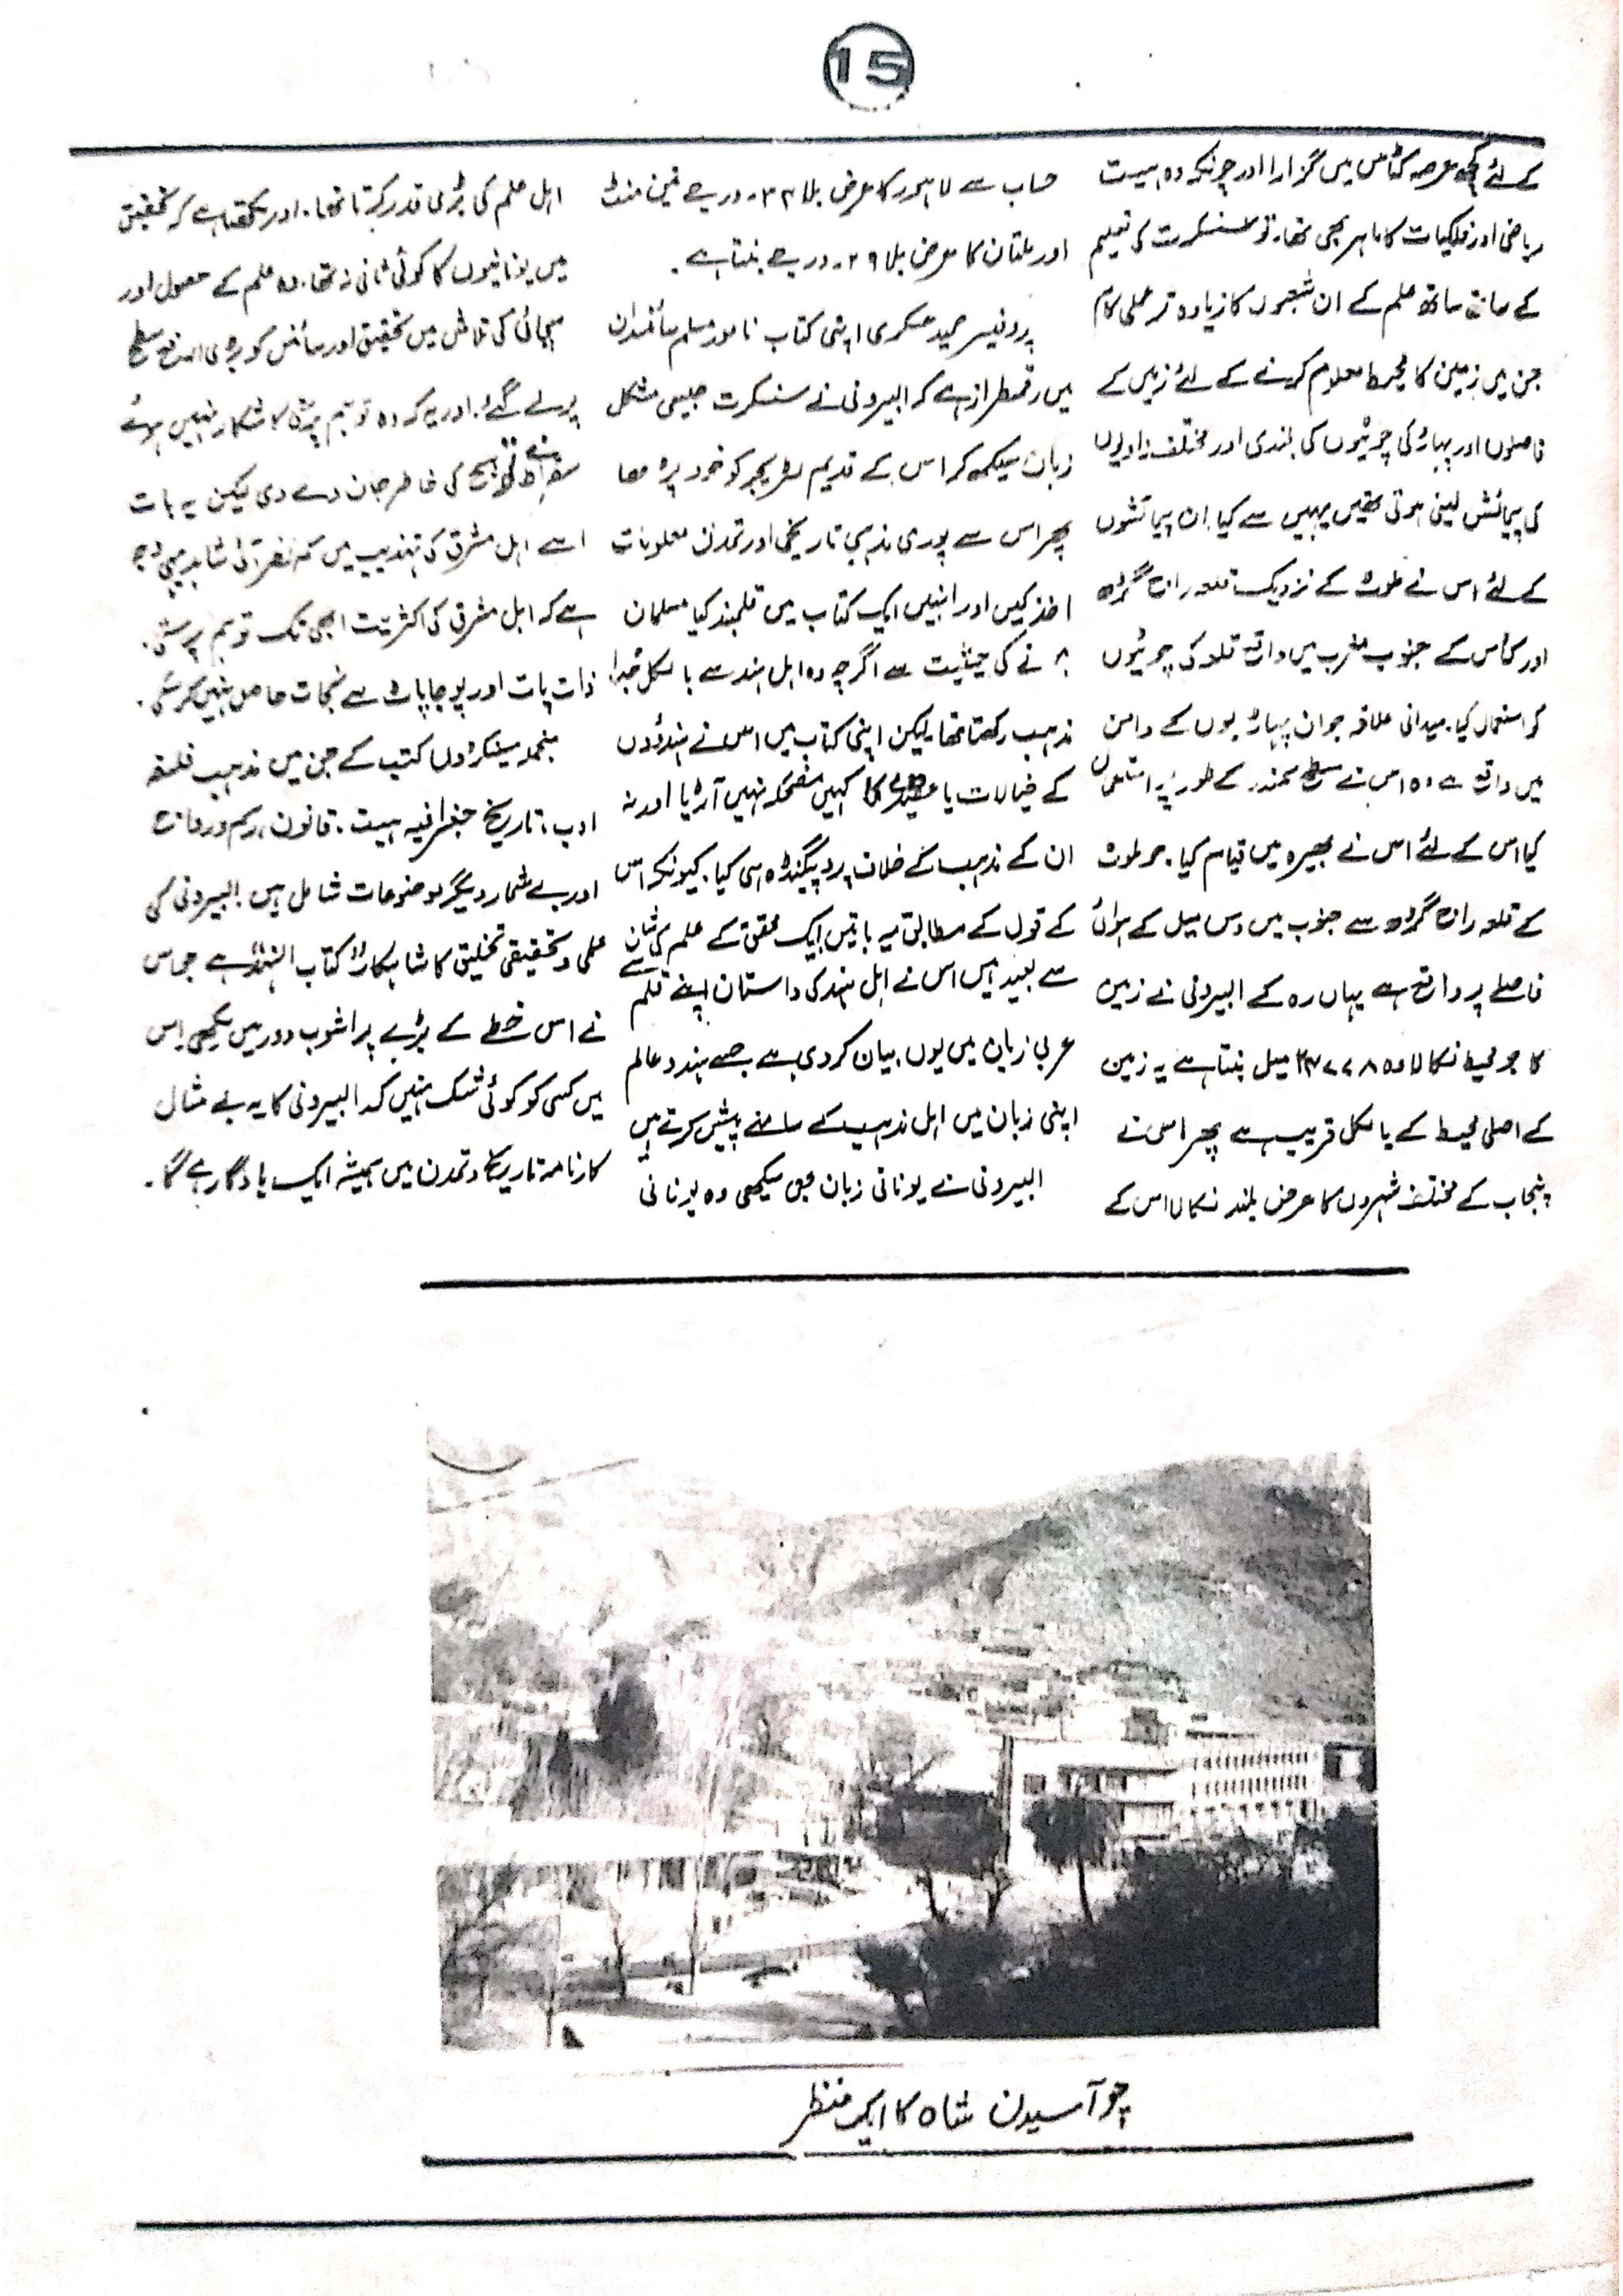 15
کے لئے کچھ عرصہ کٹاس میں گزارا اور چونکہ وہ ہیت
ریاضی اور فلکیات کا ماہر بھی تھا۔ تو سنسکرت کی تعلیم
کے ساتھ ساتھ علم کے ان شعبوں کا زیادہ تر عملی کام
جن میں زمین کا محیط معلوم کرنے کے لئے زمین کے
فاصلوں اور پہاڑ کی چوٹیوں کی بلندی اور مختلف زاویوں
کی پیمائش لینی ہوتی تھیں یہیں سے کیا۔ ان پیمائشوں
کے لئے اس نے ملوٹ کے نزدیک قلعہ راج گڑھ
اور کٹاس کے جنوب مغرب میں واقع قلعہ کی چوٹیوں
کو استعمال کیا۔ میدانی علاقہ جو ان پہاڑیوں کے دامن
میں واقع ہے وہ اس نے سطح سمندر کے طور پر استعمال
کیا اس کے لئے اس نے بھیرہ میں قیام کیا۔ جو ملوٹ
کے قلعہ راج گڑھ سے جنوب میں دس میل کے ہوائی
فاصلے پر واقع ہے یہاں رہ کے البیرونی نے زمین
کا جو محیط نکالا وہ میل بنتا ہے یہ زمین
کے اصلی محیط کے بالکل قریب ہے پھر اس نے
پنجاب کے مختلف شہروں کا عرض بلند نکالا اس کے
حساب سے لاہور کا عرض بلا ۳۴۔ درجے تین منٹ
اور ملتان کا عرض بلا ۲۹۔ درجے بنتا ہے۔
پروفیسر حمید عسکری اپنی کتاب نامور مسلم سائنسدان
میں رقمطراز ہے کہ البیرونی نے سنسکرت جیسی مشکل
زبان سیکھ کر اس کے قدیم لٹریچر کو خود پڑھا
پھر اس سے پوری مذہبی تاریخی اور تمدن معلومات
اخذ کیں اور انہیں ایک کتاب میں قلمبند کیا مسلمان
نے کی حیثیت سے اگرچہ وہ اہل ہند سے بالکل جدا
مذہب رکھتا تھا لیکن اپنی کتاب میں اس نے ہندوؤں
کے خیالات یا کا کہیں مضحکہ نہیں اڑیا اور نہ
ان کے مذہب کے خلاف پروپیگنڈہ ہی کیا۔ کیونکہ اس
کے قول کے مطابق یہ باتیں ایک محقق کے علم کی شان
سے بعید ہیں اس نے اہل ہند کی داستان اپنے قلم سے
عربی زبان میں یوں بیان کردی ہے جسے ہندو عالم
اپنی زبان میں اہل مذہب کے سامنے پیش کرتے ہیں
البیرونی نے یونانی زبان بھی سیکھی وہ یونانی
اہل علم کی بڑی قدر کرتا تھا۔ اور لکھتا ہے کہ تحقیق
میں یونانیوں کا کوئی ثانی نہ تھا۔ وہ علم کے حصول اور
سچائی کی تلاش میں تحقیق اور سائنس کو بڑی ارفع سطح
پر لے گئے۔ اور یہ کہ وہ توہم پرستی کا شکار نہیں ہوئے
سقراط نے سچ کی خاطر جان دے دی لیکن یہ بات
اسے اہل مشرق کی تہذیب میں کم نظر آئی شاید یہی وجہ
ہے کہ اہل مشرق کی اکثریت ابھی تک توہم پرستی،
ذات پات اور پوجا پاٹ سے نجات حاصل نہیں کرسکی۔
منجملہ سینکڑوں کتب کے جن میں مذہب فلسفہ
ادب، تاریخ جغرافیہ ہیت، قانون، رسم و رواج
اور بے شمار دیگر موضوعات شامل ہیں البیرونی کی
علمی و تحقیقی تخلیق کا شاہکار کتاب الہند ہے جو اس
نے اس خطے کے بڑے پر اشوب دور میں لکھی اس
میں کسی کو کوئی شک نہیں کہ البیرونی کا یہ بے مثال
کارنامہ تاریخ و تمدن میں ہمیشہ ایک یادگار رہے گا۔
چوآ سیدن شاہ کا ایک منظر